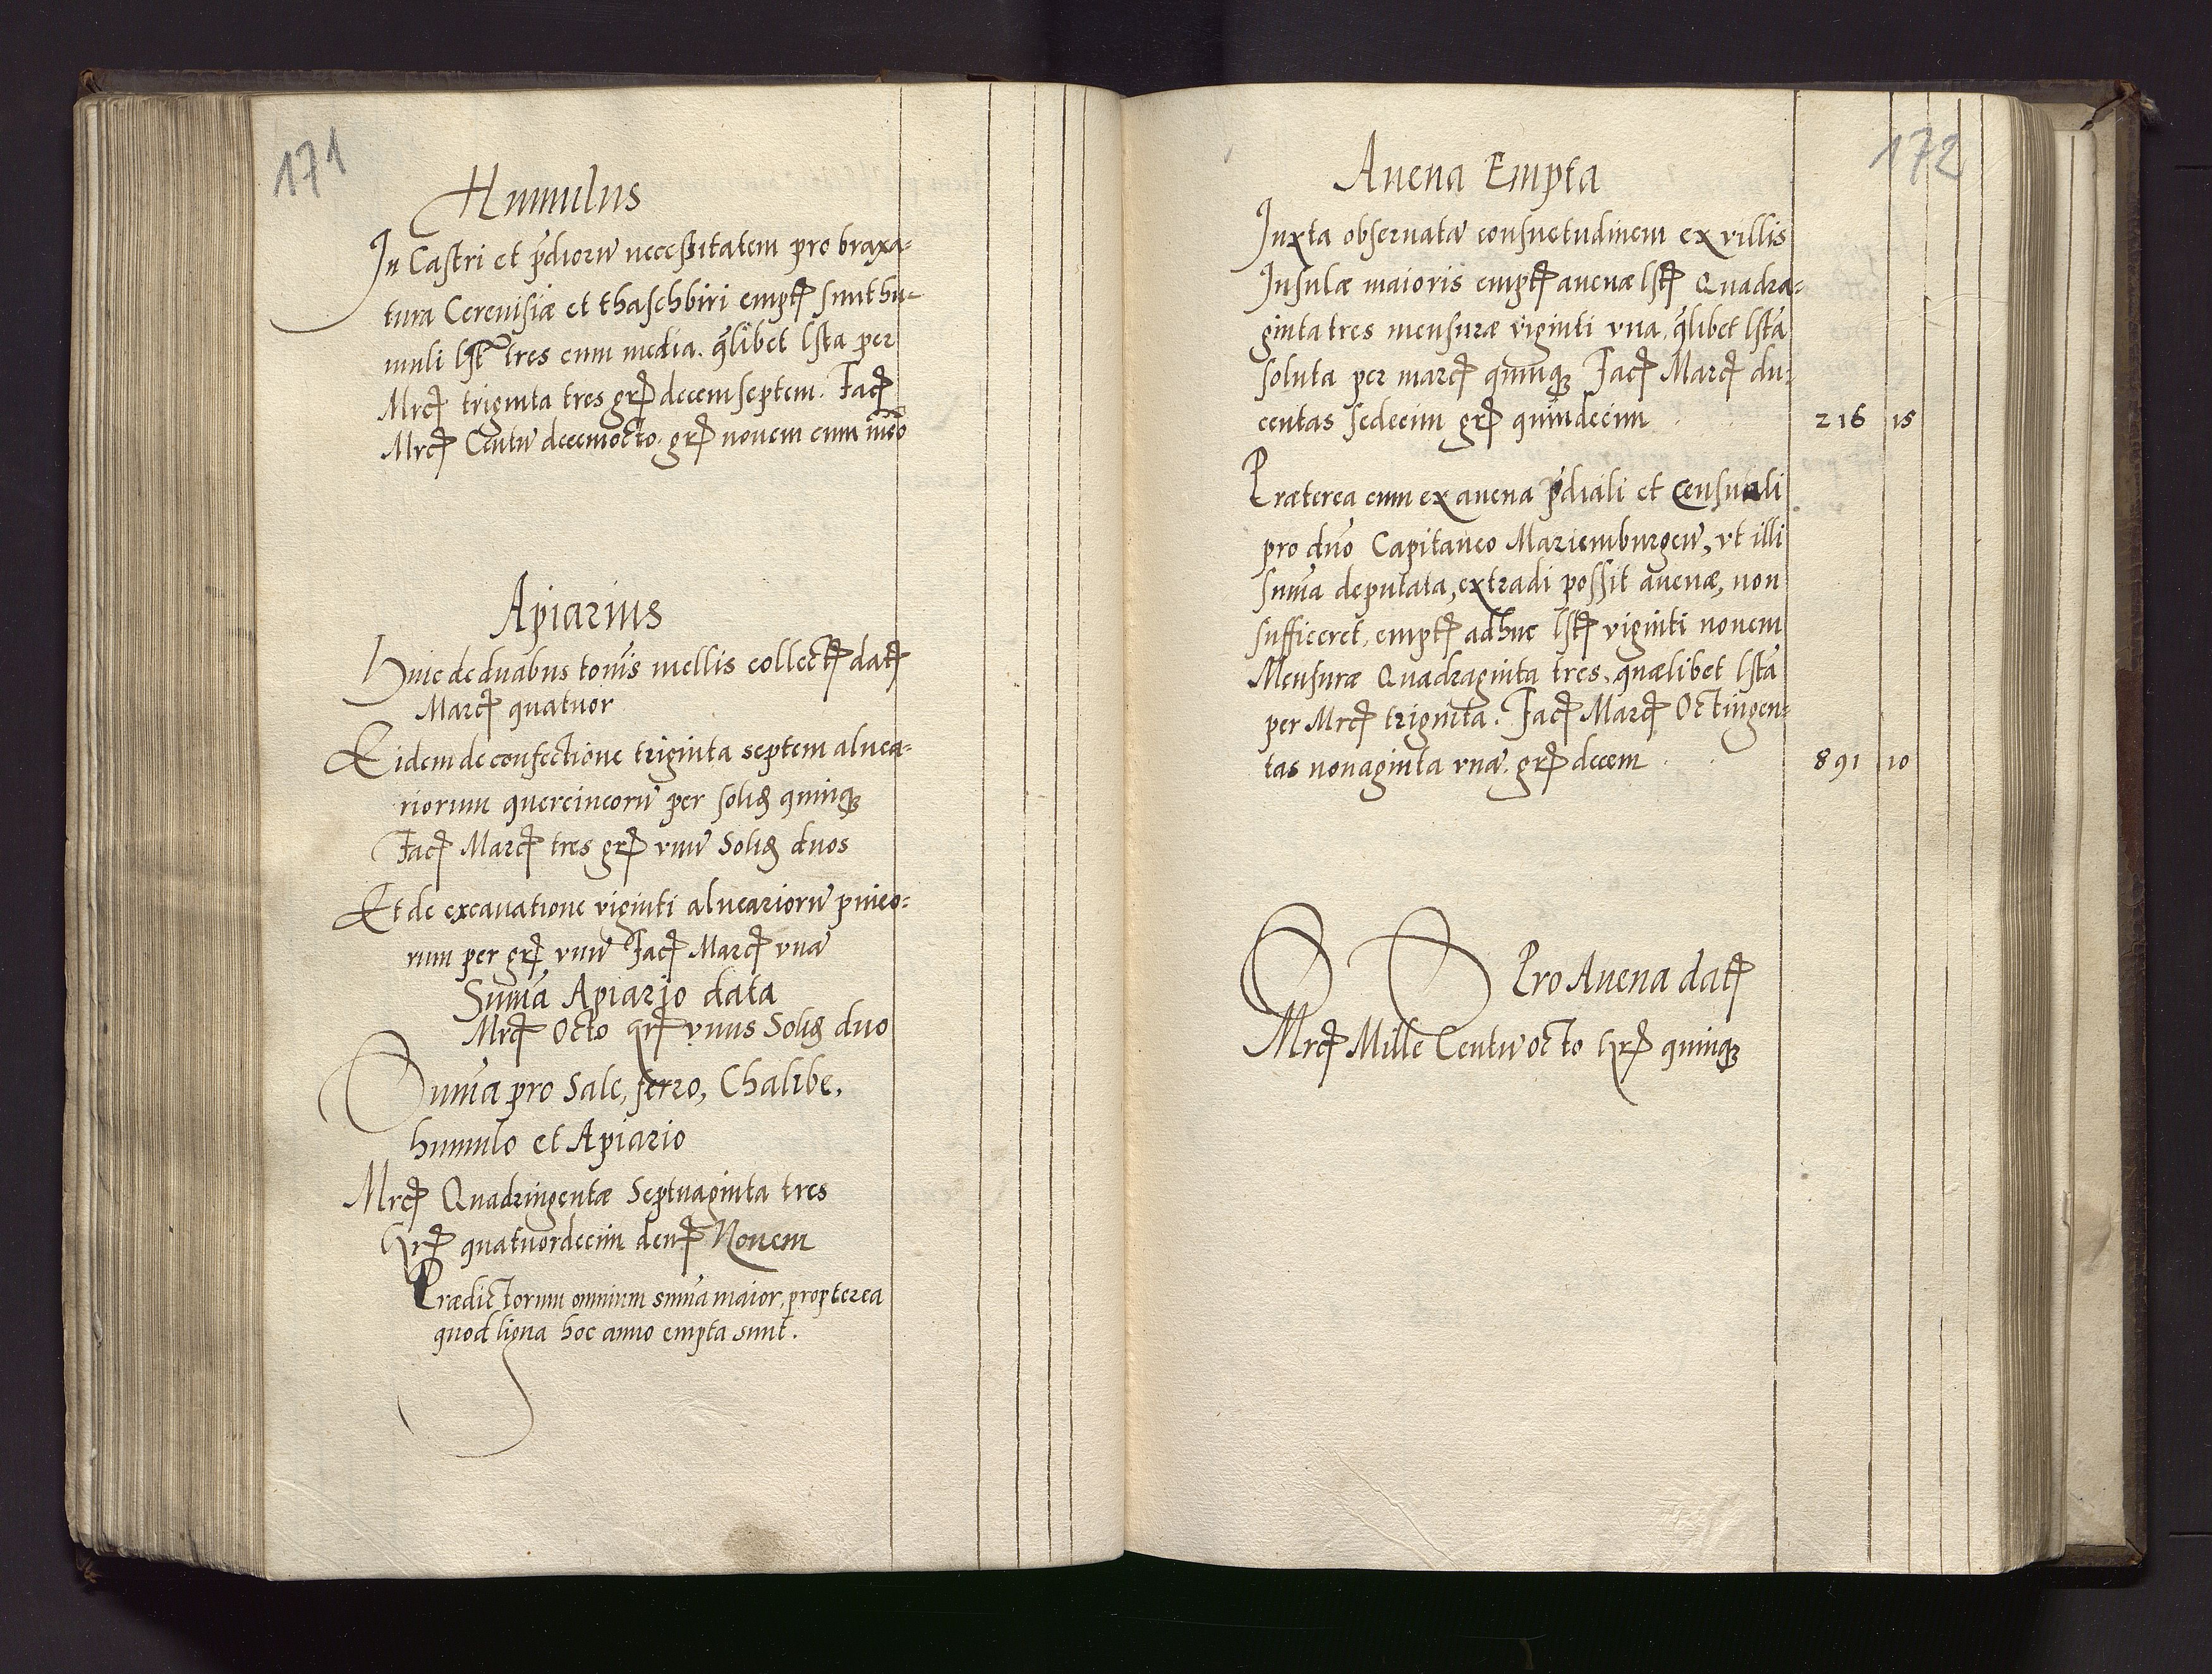 171
Humulus
In Castri et p̄dioru̅ necessitatem pro braxa=
tura Cereuisiæ et thaschbiri empt sunt hu=
muli lst tres cum media. q̄libet lsta per
Mrc triginta tres gr decem septem. Fac
Mrc Centu̅ decemocto. gr nouem cum med̅o
Apiarius
Huic de duabus ton̅is mellis collect dat
Marc quatuor
Eidem de confectione triginta septem aluea=
riorum quercineoru̅ per solid quinq
Fac Marc tres gr vnu̅ Solid duos
Et de excauatione viginti aluearioru̅ pineo=
rum per gr vnu̅ Fac Marc vna̅
Sum̅a Apiario data
Mrc Octo gr vnus Solid duo
Sum̅a pro Sale, ferro, Chalibe,
humulo et Apiario
Mrc Quadringentæ Septuaginta tres
Gr quatuordecim den Nouem
Prædictorum omnium sum̅a maior, propterea
quod ligna hoc anno empta sunt.
172
Auena Empta
Juxta obseruata̅ consuetudinem ex villis
Insulæ maioris empt auenæ lst Quadra=
ginta tres mensuræ viginti vna. q̄libet lsta
soluta per marc quinq Fac Marc du=
centas sedecim gr quindecim 216 15
Præterea cum ex auena p̄diali et censuali
pro dn̅o Capitaneo Mariemburgen̅, vt illi
sum̅a deputata, extradi possit auenæ, non
sufficeret, empt adhuc lst viginti nouem
Mensuræ Quadraginta tres, quælibet lsta
per Mrc triginta. Fac Marc Octingen=
tas nonaginta vna̅. gr decem 891 10
Pro Auena dat
Mrc Mille Centu̅ octo Gr quinq